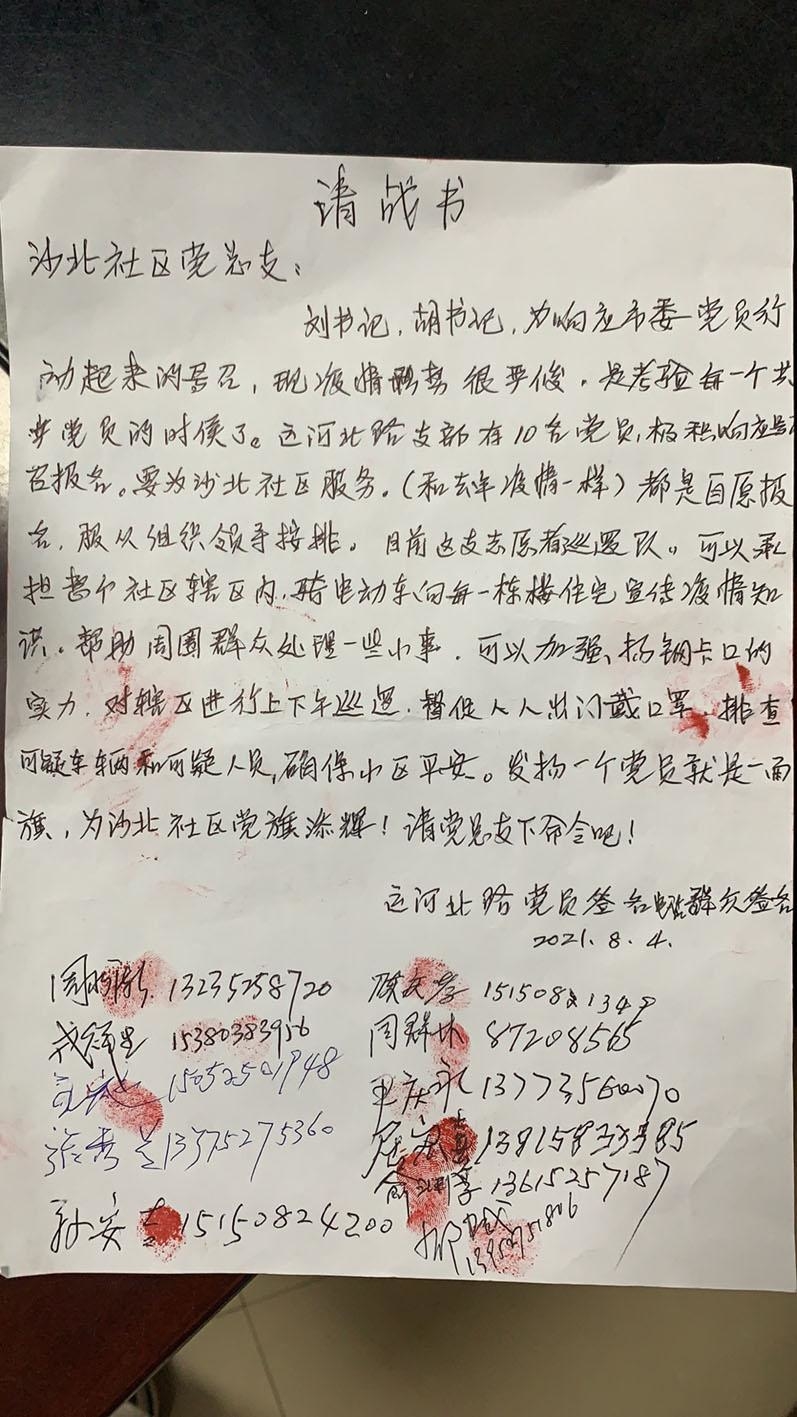 请战书
沙北社区党总支：
刘书记，胡书记，为响应市委党员行
动起来的号召，现疫情形势很严俊，是考验每一个共
产党员的时侯了。运河北路支部有10名党员，极积响应号
召报名。要为沙北社区服务。（和去年疫情一样）都是自愿报
名，服从组织领导按排。目前这支志愿者巡逻队。可以承
担整个社区辖区内，骑电动车向每一栋楼住宅宣传疫情知
识。帮助周围群众处理一些小事，可以加强、扬钢卡口的
实力，对辖区进行上下午巡逻，督促人人出门戴口罩、排查
可疑车辆和可疑人员，确保小区平安。发扬一个党员就是一面
旗，为沙北社区党旗添辉！请党总支下命令吧！
运河北路党员签名 群众签名
2021.8.4.
13235258720 15150821349
15380383956 周群林 87208565
15052501948 王庆永 13773560070
张秀兰 13375275360 13815833385
13615257187
孙安 15150824200